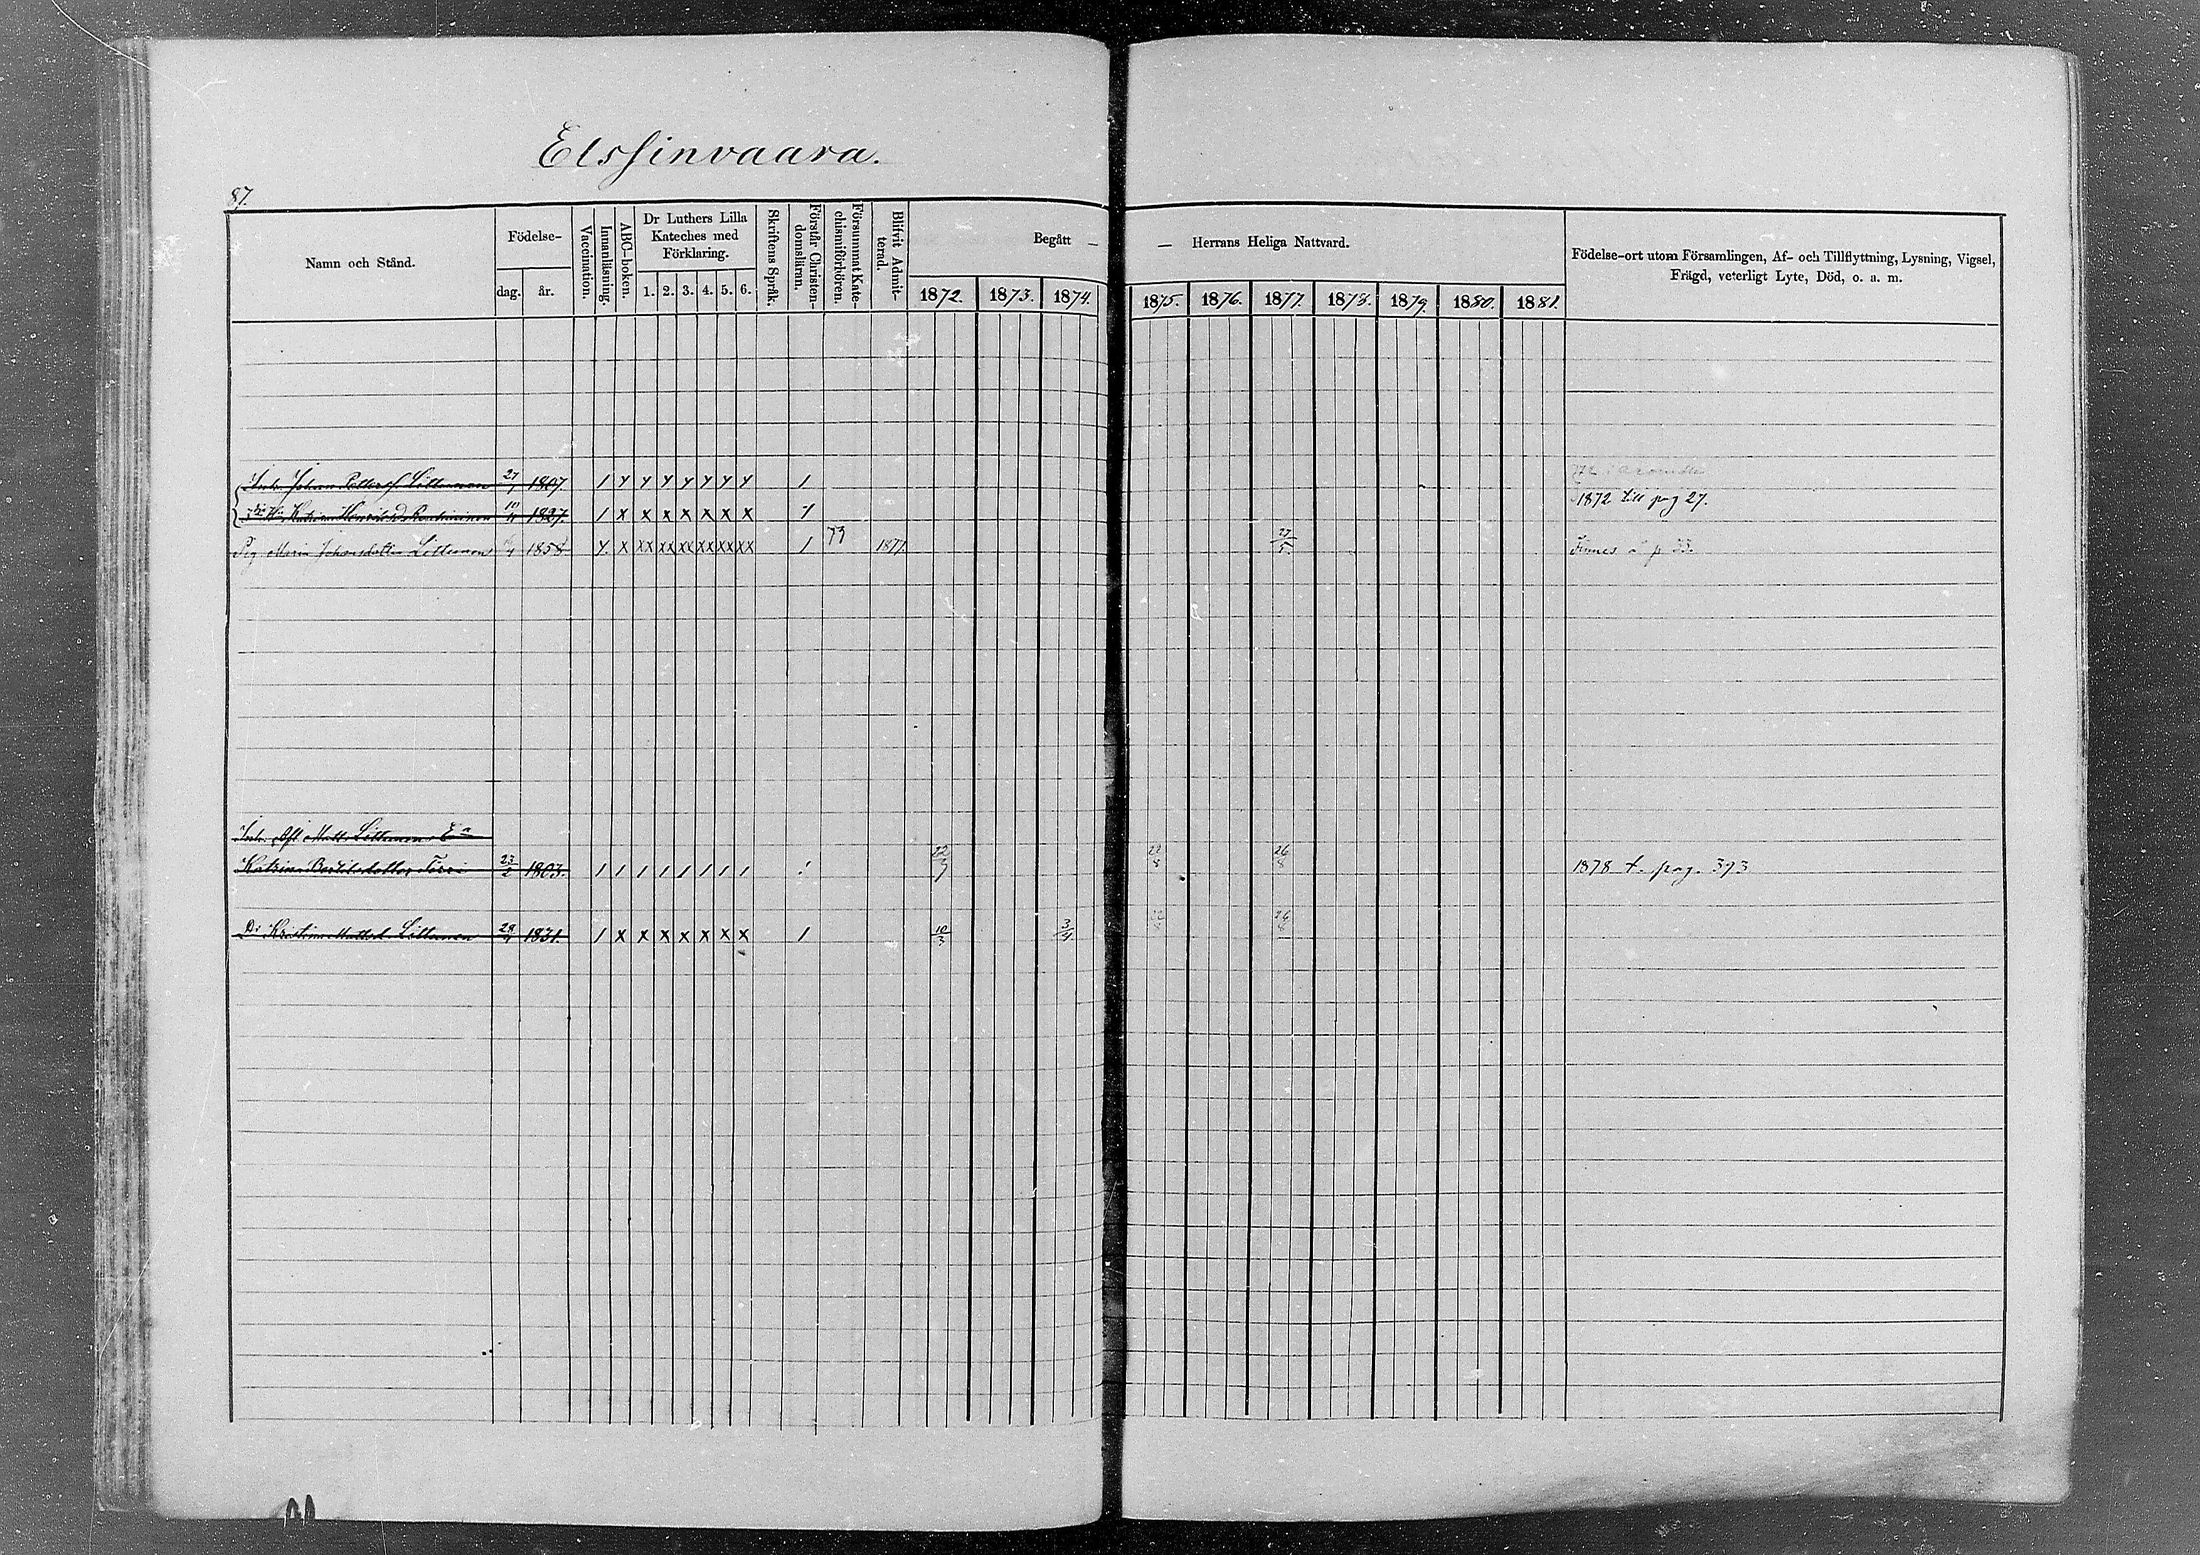 Elssinvaara.
87.
Namn och Stånd.
Födelse-
dag. år.
Vaccination.
Innanläsning.
ABC-boken.
Dr Luthers Lilla Kateches med Förklaring.
1. 2. 3. 4. 5. 6.
Skriftens Språk.
Förstår Christendomsläran.
Försummat Katechismiförhören.
Blifvit Admitterad.
Begått — — Herrans Heliga Nattvard.
1872. 1873. 1874. 1875. 1876. 1877. 1878. 1879. 1880. 1881.
Födelse-ort utom Församlingen, Af- och Tillflyttning, Lysning, Vigsel,
Frägd, veterligt Lyte, Död, o. a. m.
Johan Littunen 27 1807. 1 x x x x x x x 1
Katrina 1827. 1 x x x x x x x 1 1872 till pag 27.
Pig Maria Johansdotter Littunen 1858 x. x xx xx xx xx xx xx 1 73 1877. 27/5. Finnes å p 33.
Matts Littunen Ea
Katrina Bertilsdotter 23/2 1803. 1 1 1 1 1 1 1 1 22 26/8 1878 t. pag. 393
Dr Kristina Mattsd. Littunen 28 1831. 1 x x x x x x x 1 10/3 3/4 22 26/8